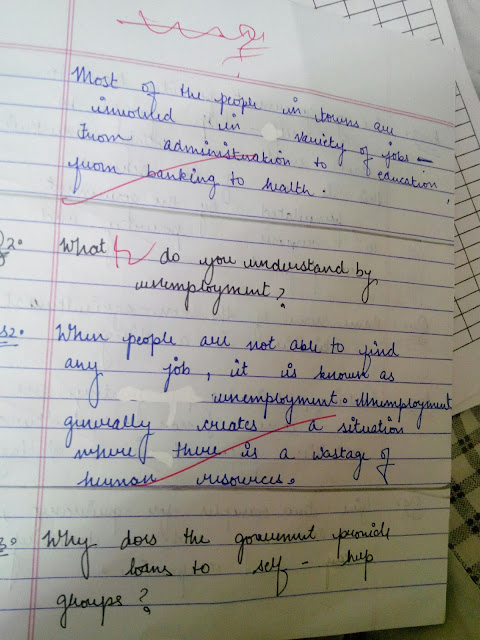 Most of the people in towns are
involved in variety of jobs -
From administration to education,
from banking to health.
2. What do you understand by
unemployment?
s2. When people are not able to find
any job, it is known as
unemployment. Unemployment
generally creates a situation
where there is a wastage of
human resources.
3. Why does the government provide
loans to self - help
groups?